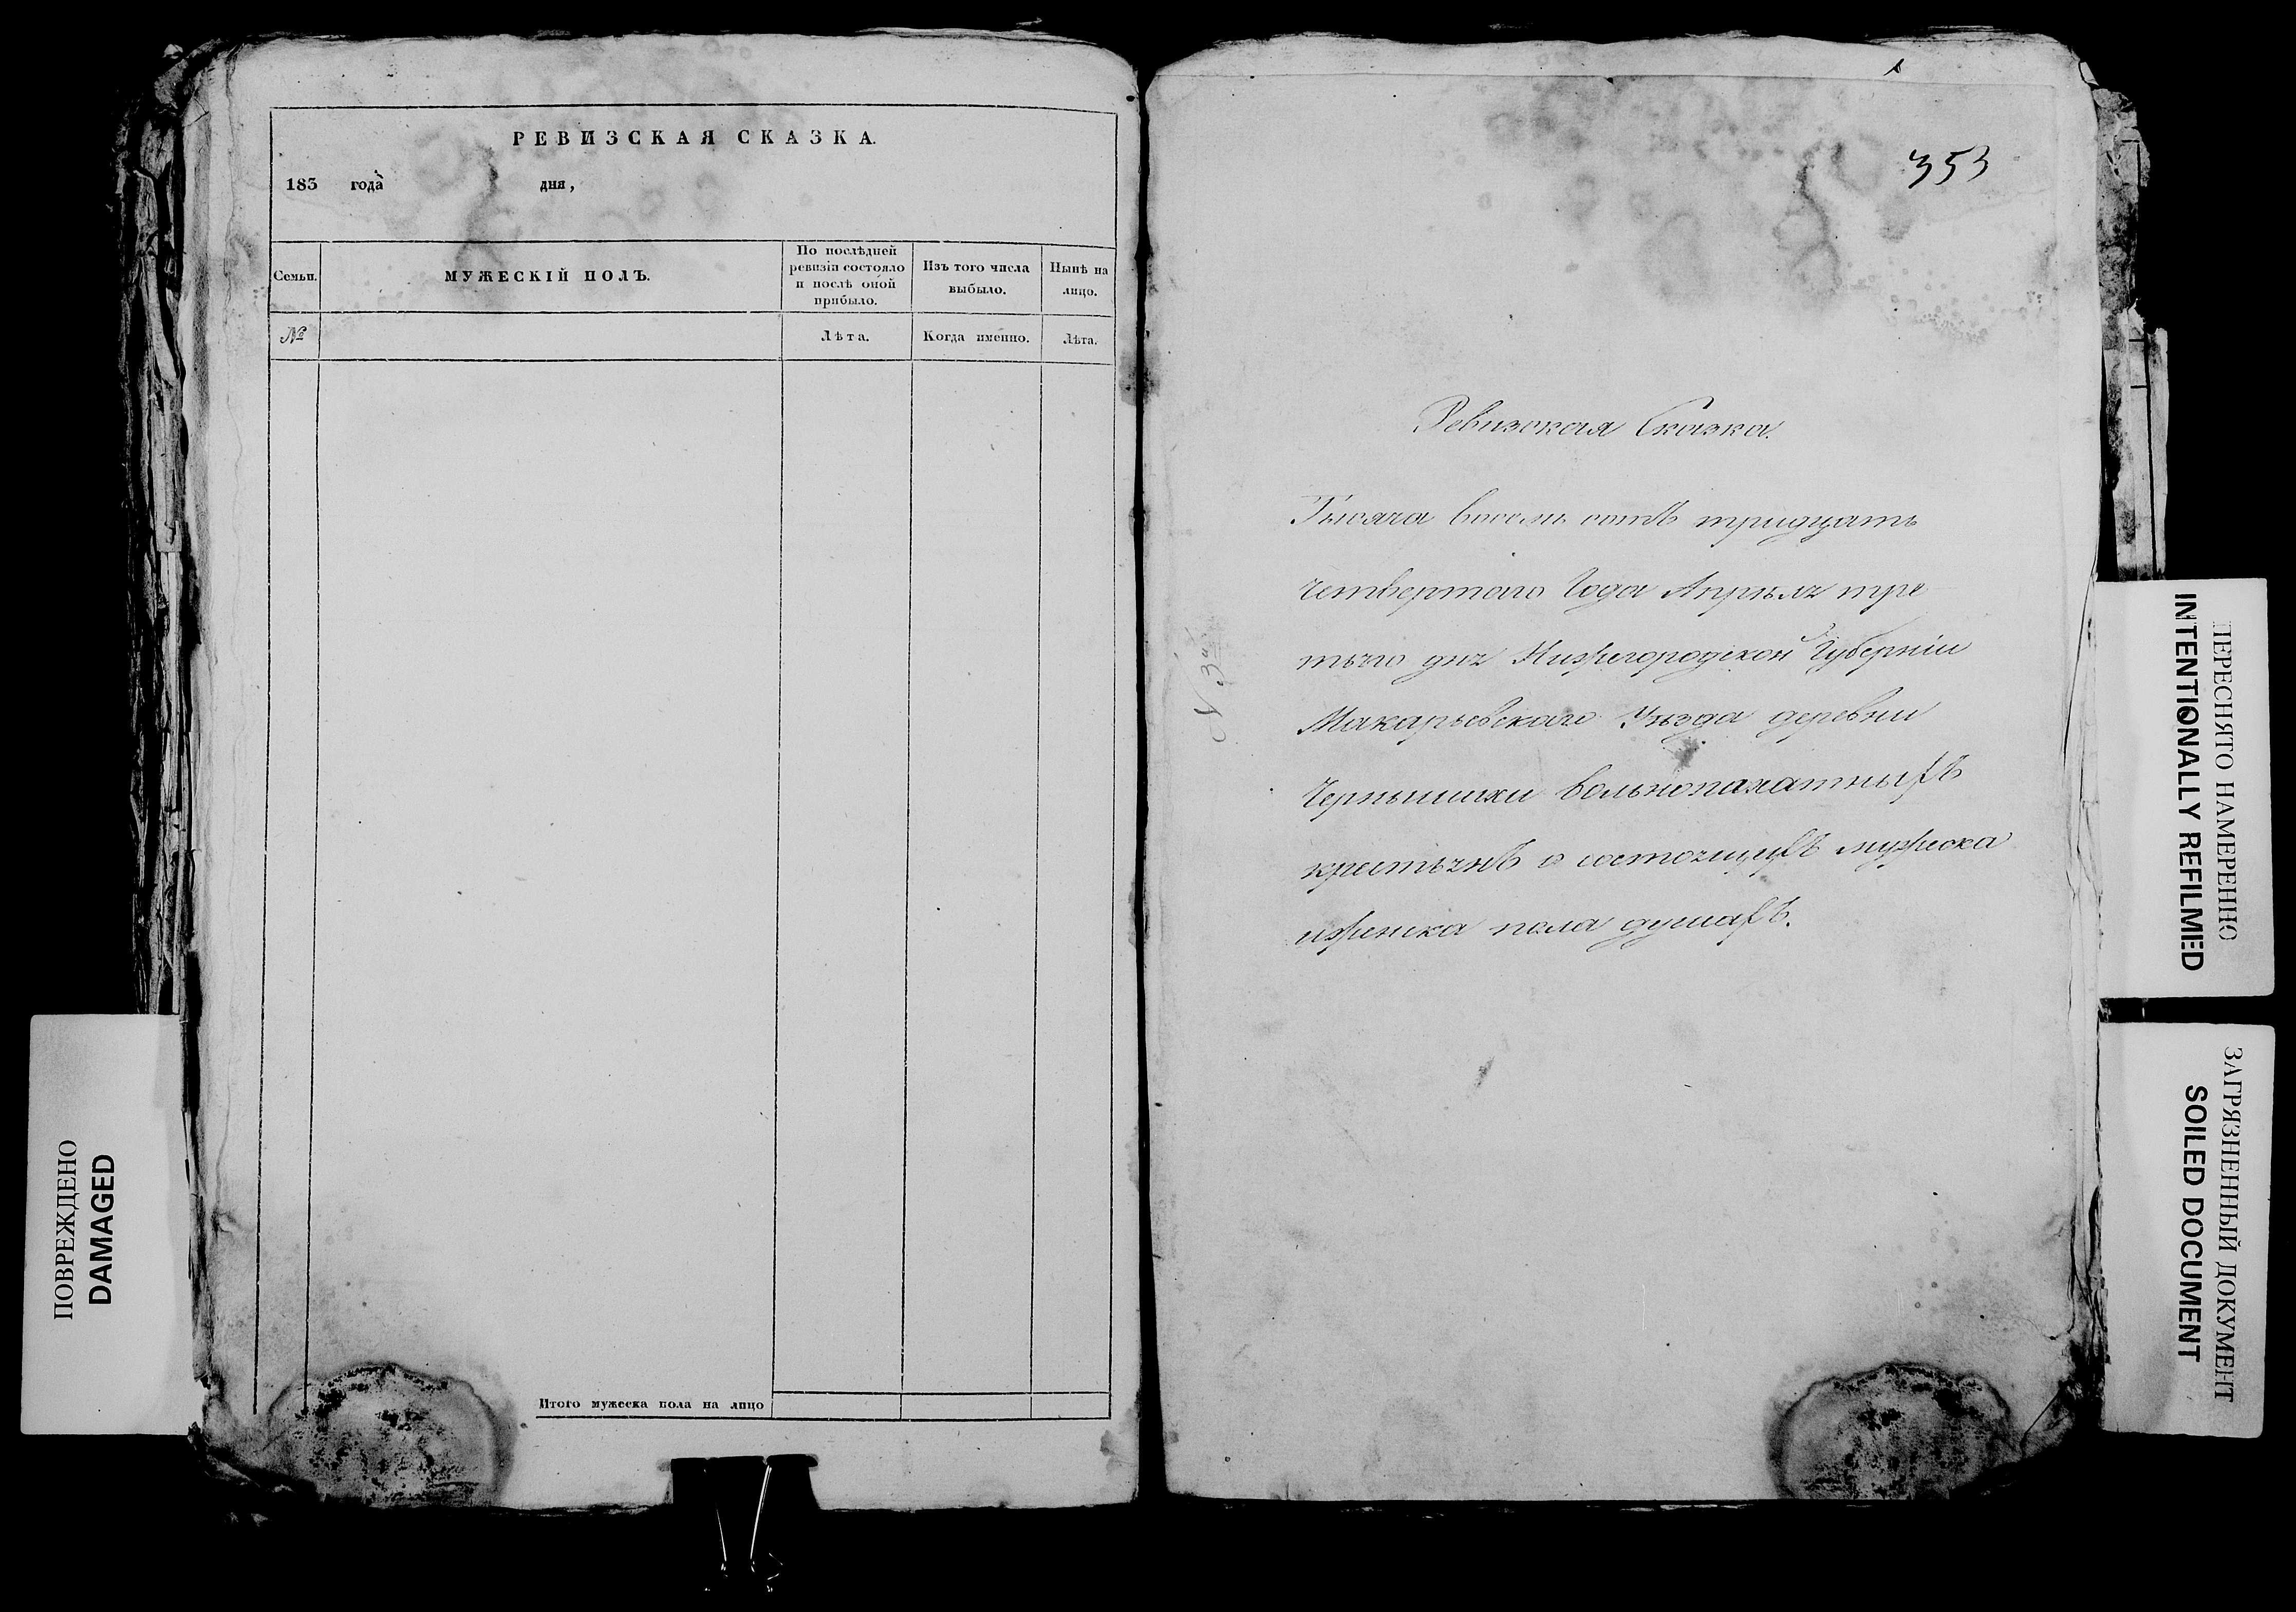 РЕВИЗСКАЯ СКАЗКА.
183 года дня,
Семьи.
МУЖЕСКІЙ ПОЛЪ.
По послѣдней
ревизіи состояло
и послѣ оной
прибыло.
Изъ того числа
выбыло.
Нынѣ на
лицо.
№
Лѣта.
Когда именно.
Лѣта.
Итого мужеска пола на лицо
ПОВРЕЖДЕНО
DAMAGED
353
Ревизская Сказка.
Тысяча восемь сотъ тридцать
четвертаго Года Апрѣля тре
тьяго дня Нижегородской Губерніи
Макарьевскаго Уѣзда деревни
Чернышихи вольнопахатныхъ
крестьянъ о состоящихъ мужеска
иженска пола душахъ.
ПЕРЕСНЯТО НАМЕРЕННО
INTENTIONALLY REFILMED
ЗАГРЯЗНЕННЫЙ ДОКУМЕНТ
SOILED DOCUMENT